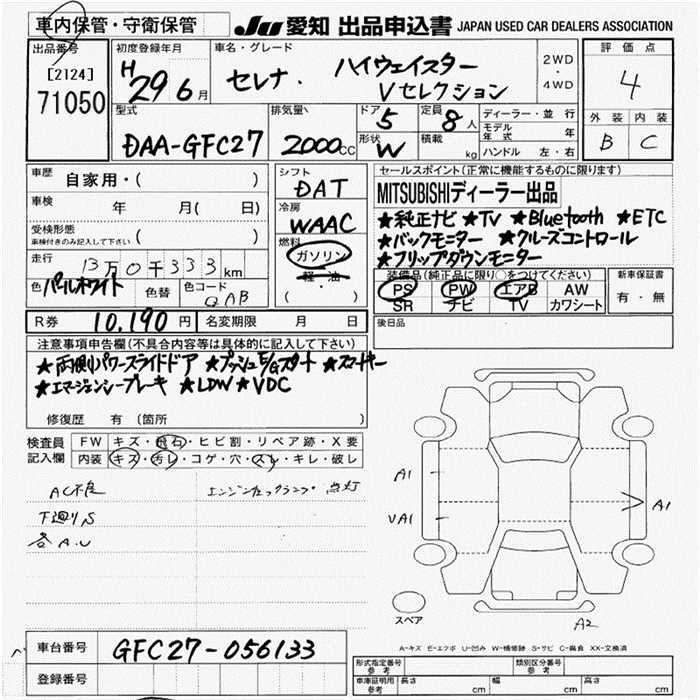 車内保管・守衛保管
JU 愛知 出品申込書 JAPAN USED CAR DEALERS ASSOCIATION
出品番号
[2124]
71050
初度登録年月
H29 6月
車名・グレード
セレナ・ ハイウェイスター
Vセレクション
2WD
・
4WD
評価点
4
外装 内装
B C
型式
DAA-GFC27
排気量
2000cc
ドア 5
形状 W
定員 8人
積載 kg
ディーラー・並行
モデル年式 年
ハンドル 左・右
車歴 自家用・( )
車検 年 月( 日)
受検形態
車検付きのみ記入して下さい ( )
走行 13万0千333km
色 パールホワイト 色替 色コード QAB
シフト
DAT
冷房
WAAC
燃料
ガソリン
軽・油
( )
セールスポイント(正常に機能するものに限ります)
MITSUBISHIディーラー出品
★純正ナビ ★TV ★Bluetooth ★ETC
★バックモニター ★クルーズコントロール
★フリップダウンモニター
装備品(純正品に限り○をつけてください)
PS PW エアB AW
SR ナビ TV カワシート
新車保証書
有・無
R券 10,190円 名変期限 月 日
後日品
注意事項申告欄(不具合内容等は具体的に記入して下さい)
★両側パワースライドドア ★プッシュE/Gスタート ★スマートキー
★エマージェンシーブレーキ ★LDW ★VDC
修復歴 有 (箇所 )
検査員記入欄
FW キズ・飛石・ヒビ割・リペア跡・X要
内装 キズ・汚レ・コゲ・穴・スレ・キレ・破レ
AC不良 エンジンチェックランプ 点灯
下廻りS
各A.U
A1
UA1
A1
A2
スペア
A-キズ E-エクボ U-凹み W-補修跡 S-サビ C-腐食 XX-交換済
車台番号 GFC27-056133
登録番号
形式指定番号 参考
類別区分番号 参考
車庫証明用 参考 長さ cm 幅 cm 高さ cm